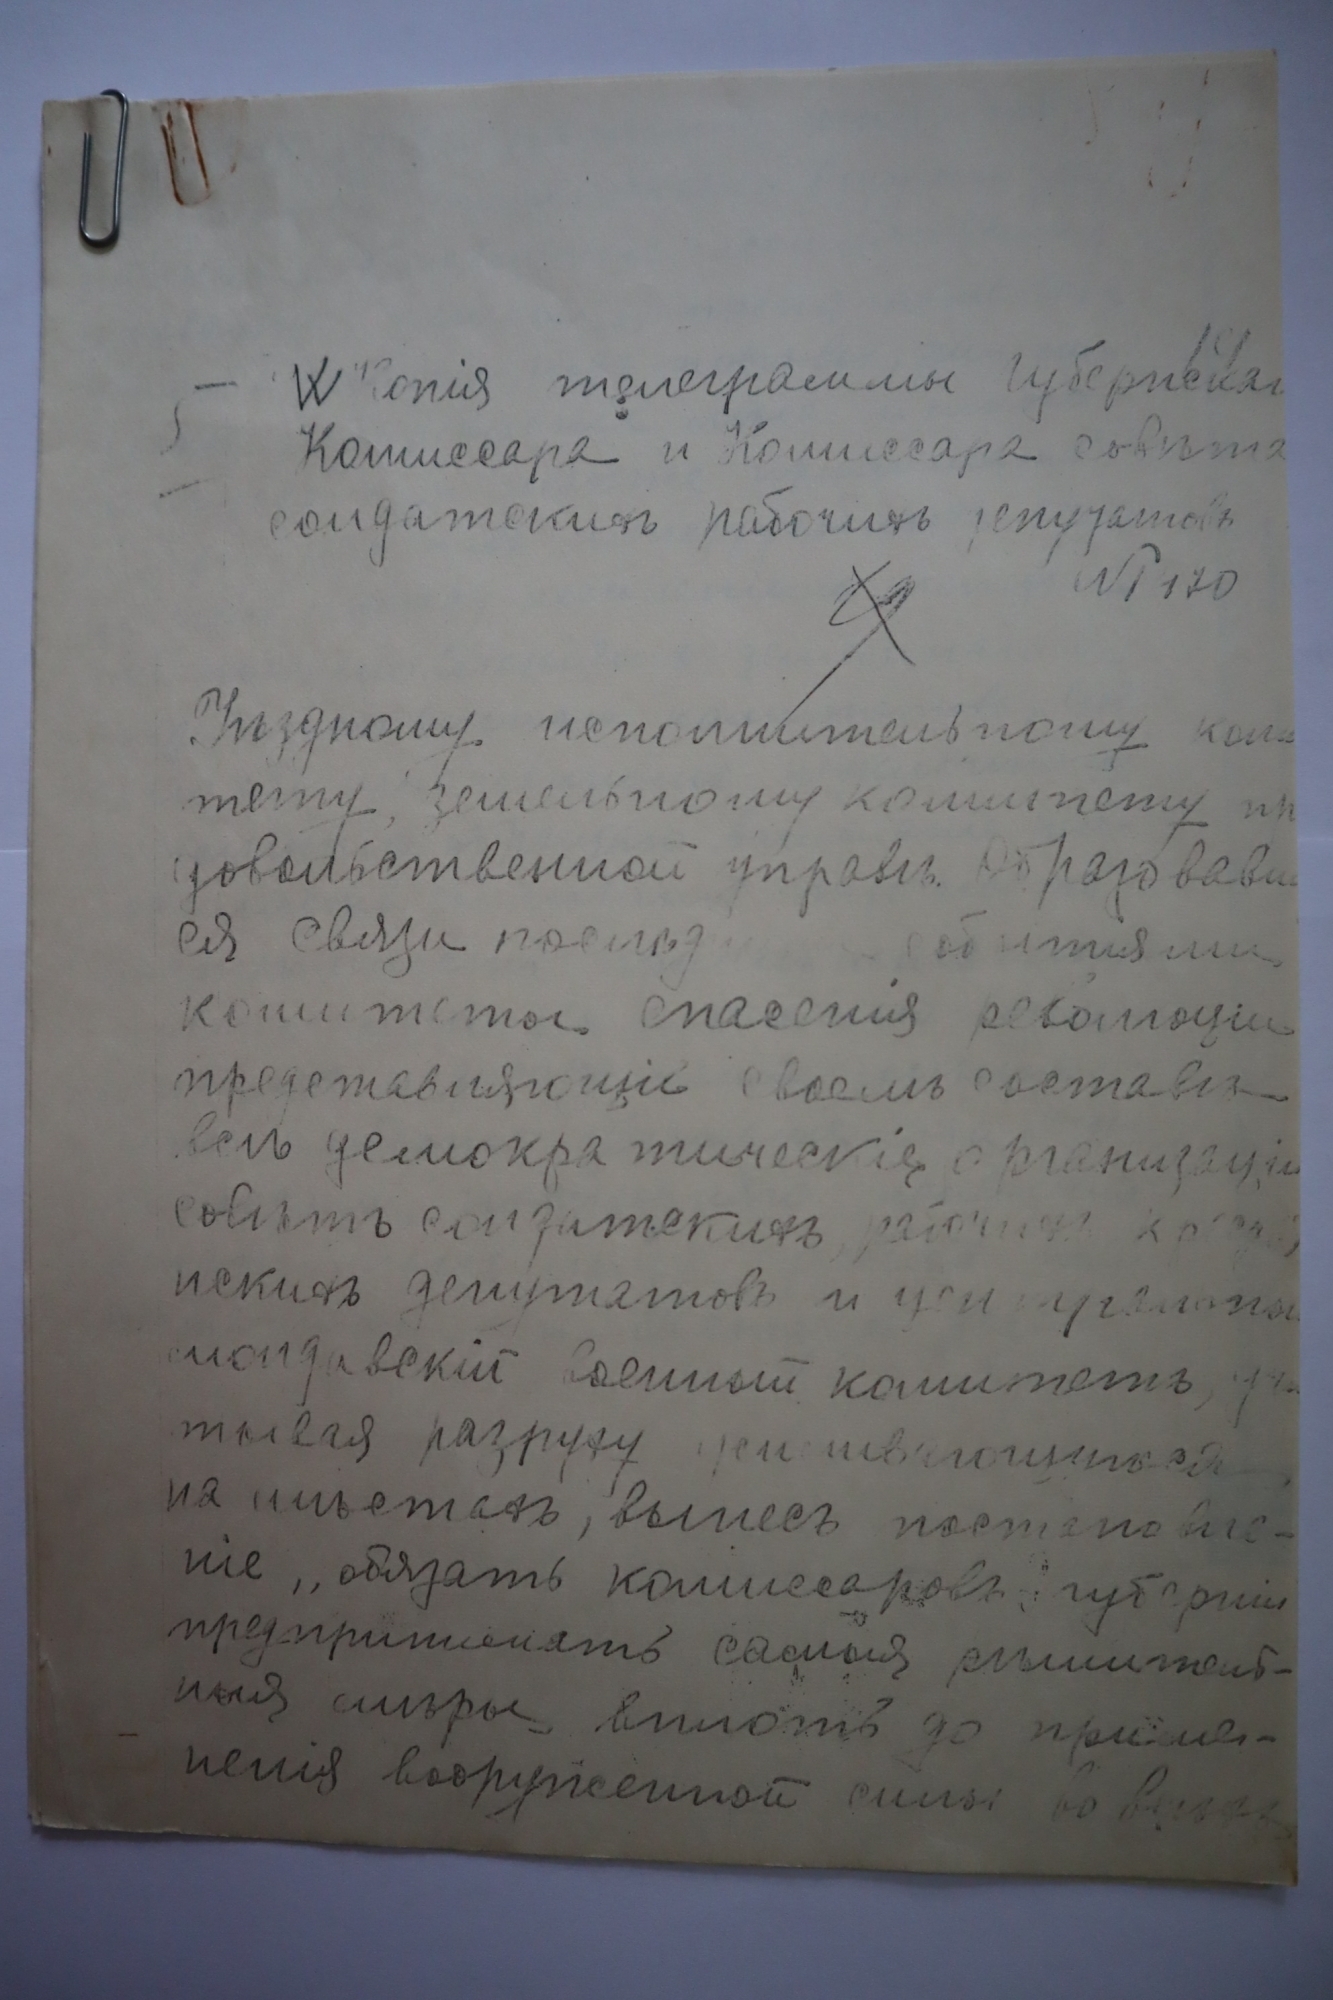 Копія телеграммы Губернскаго
Комиссара и Комиссара совѣта
солдатскихъ рабочихъ депутатовъ
№ 170
Уѣздному исполнительному коми
тету, земельному комитету про
довольственной управѣ. Образовавш
ся связи послѣд событіями
комитеты спасенія революціи
представляющій своемъ составѣ
всѣ демократическія организаціи
совѣтъ солдатскихъ, рабочихъ крестья
нскихъ депутатовъ и центральны
молдавскій военный комитетъ, учи
тывая разруху
на мѣстахъ, вынесъ постановле-
ніе „обязать комиссаровъ губерніи
предпринимать самыя рѣшитель-
ныя мѣры вплоть до примѣ-
ненія вооруженной силы во всѣхъ